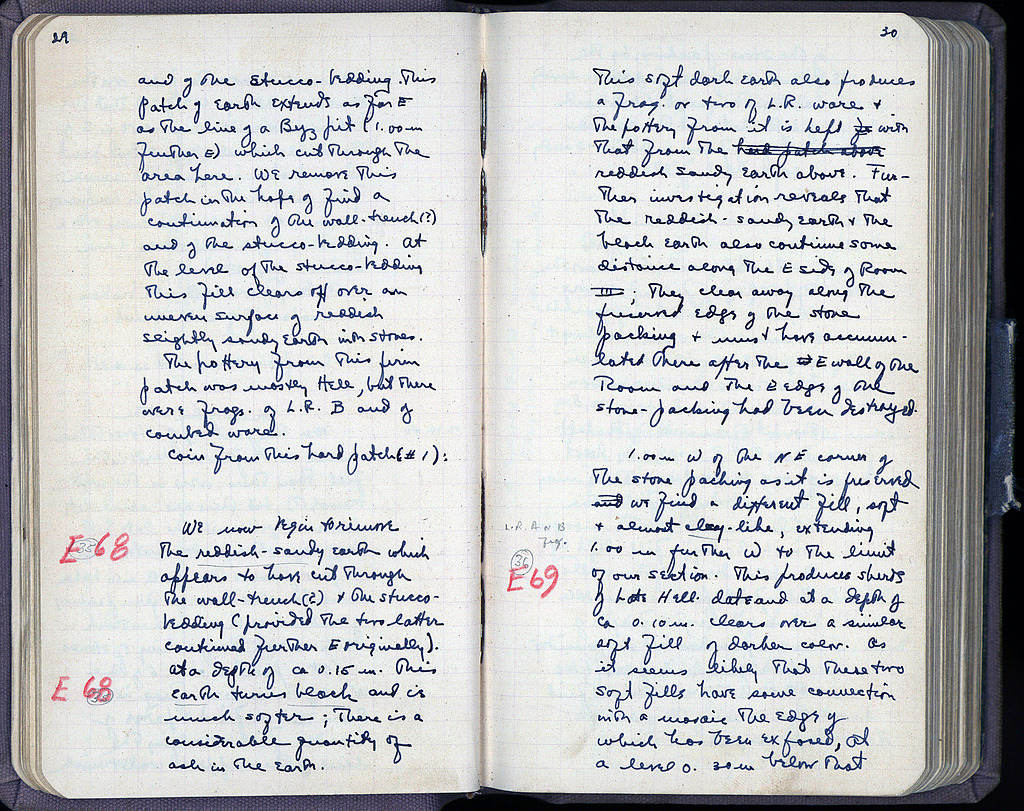 29
and of the stucco-bedding. This
patch of earth extends as far E
as the line of a Byz pit (1.00 m
further E) which cut through the
area here. We remove this
patch in the hope of find a
continuation of the wall-trench(?)
and of the stucco-bedding. At
the level of the stucco-bedding
this fill clears off over an
uneven surface of reddish
slightly sandy earth with stones.
The pottery from this firm
patch was mostly Hell, but there
were frags. of L.R. B and of
combed ware.
Coin from this hard patch (#1):
We now begin to remove
E 68
35
the reddish-sandy earth which
appears to have cut through
the wall-trench(?) & the stucco-
bedding (provided the two latter
continued further E originally).
At a depth of ca 0.15 m. this
E 68
35
earth turns black and is
much softer; there is a
considerable quantity of
ash in the earth.
30
This soft dark earth also produces
a frag. or two of L.R. ware &
the pottery from it is kept with
that from the hard patch above
reddish sandy earth above. Fur-
ther investigation reveals that
the reddish-sandy earth & the
black earth also continue some
distance along the E side of Room
III; they clear away along the
preserved edge of the stone
packing & must have accumu-
lated there after the E wall of the
Room and the E edge of the
stone-packing had been destroyed.
1.00 m W of the NE corner of
the stone packing as it is preserved
and we find a different fill, soft
L.R. A & B
& almost clay-like, extending
frg.
1.00 m further W to the limit
36
E 69
of our section. This produces sherds
of Late Hell. date and at a depth of
ca 0.10 m. clears over a similar
soft fill of darker color. As
it seems likely that these two
soft fills have some connection
with a mosaic the edge of
which has been exposed, at
a level 0.30 m below that